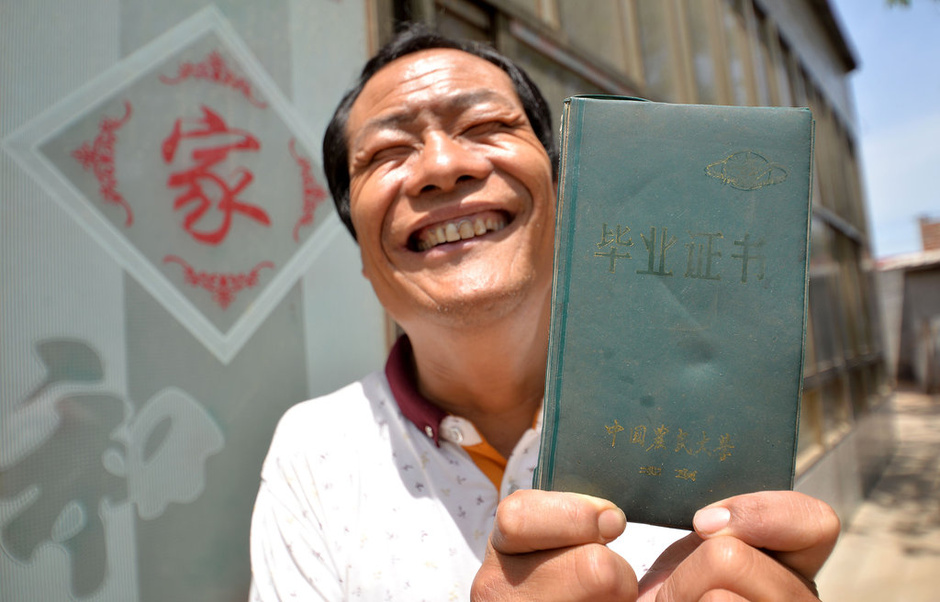 家
和
毕业证书
中国农民大学